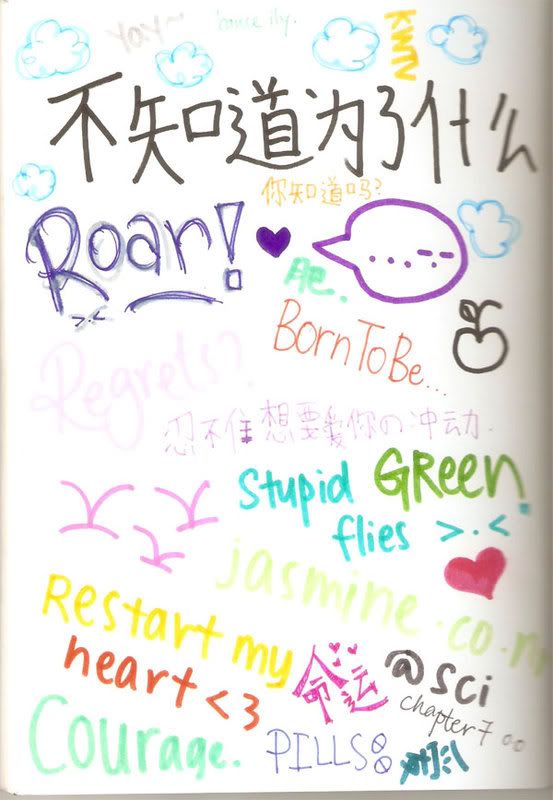 'cause ily.
不知道为了什么
你知道吗?
Roar!
....--
>.<
肥.
Born To Be...
Regrets?
忍不住想要爱你の冲动.
Stupid GReen
flies >.<
jasmine.co.nr
Restart my
heart <3
命运
@sci
chapter 7
Courage.
PILLS